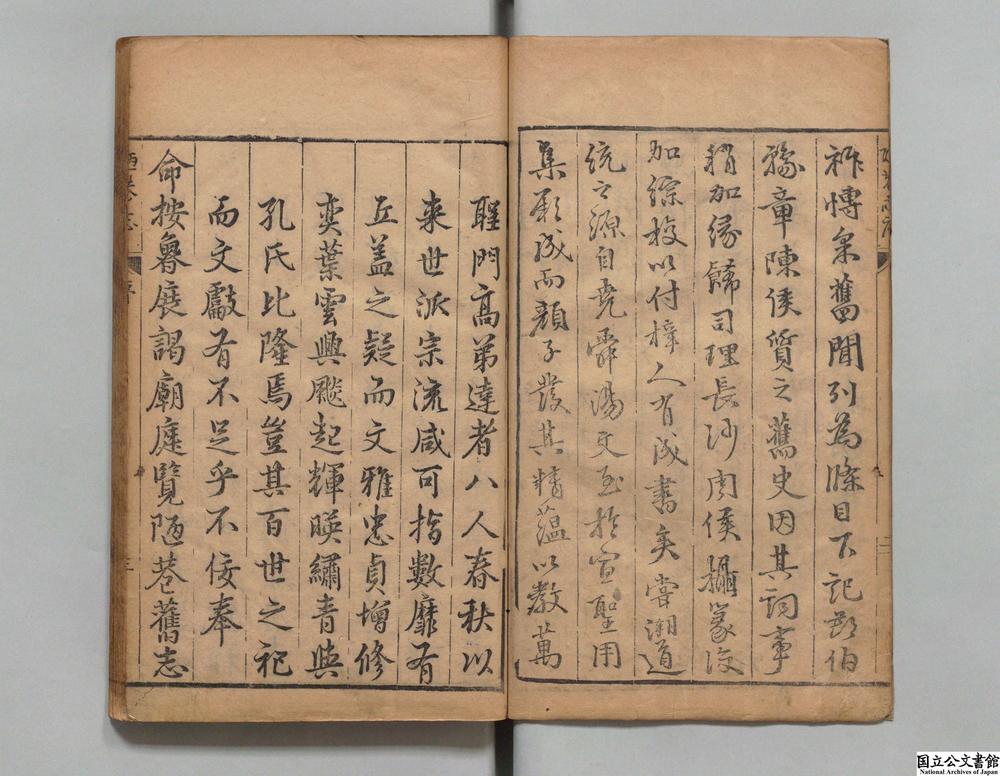 陋巷志序 二
祚博采舊聞列為條目下記郡伯
豫章陳侯質之舊史因其詞事
稍加緣飾司理長沙周侯攝篆復
加綜校以付梓人有成書矣嘗溯道
統之源自堯舜湯文至於宣聖用
集厥成而顏子發其精蘊以教萬
聖門高弟達者八人春秋以
來世派宗流咸可指數靡有
丘盖之疑而文雅忠貞增修
奕葉雲興飈起輝暎繡青與
孔氏比隆焉豈其百世之祀
而文獻有不足乎不佞奉
命按魯展謁廟庭覽陋巷舊志
陋巷志 序 三
国立公文書館
National Archives of Japan